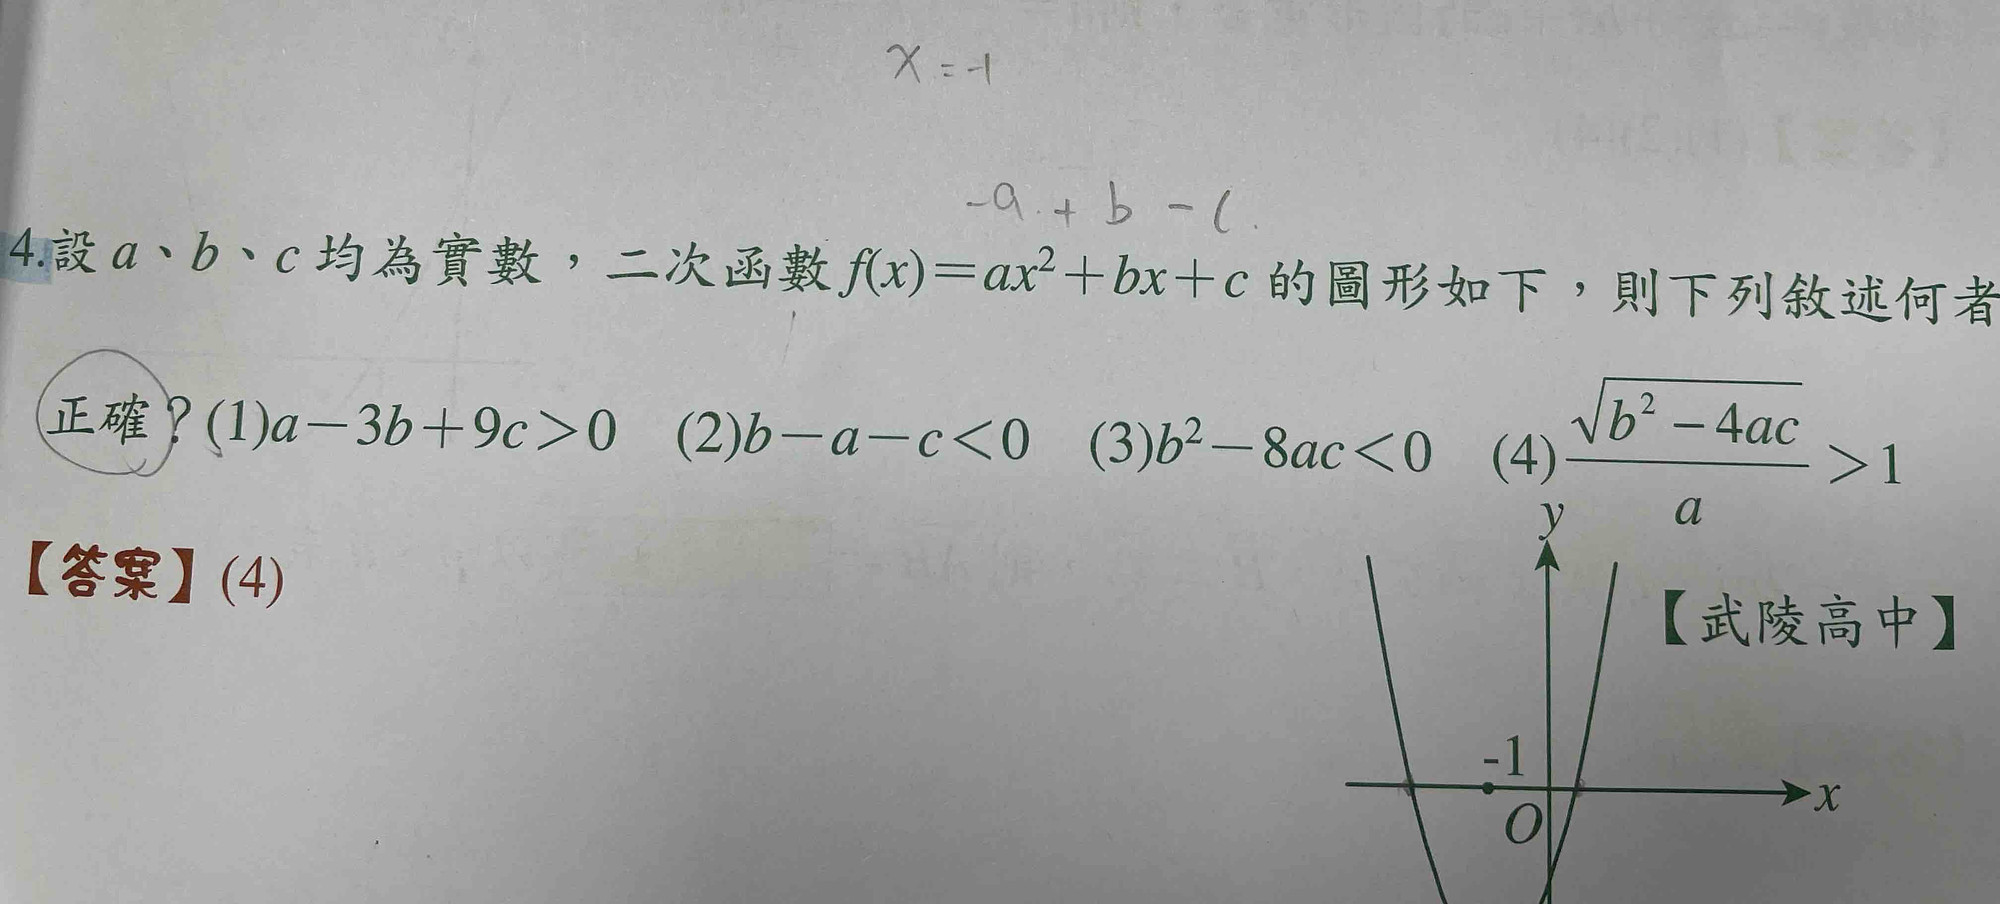 x = -1
-a + b - c
4.設 a、b、c 均為實數，二次函數 f(x)＝ax²＋bx＋c 的圖形如下，則下列敘述何者
正確？(1)a－3b＋9c＞0 (2)b－a－c＜0 (3)b²－8ac＜0 (4)√(b²－4ac)/a＞1
【答案】(4)
y
【武陵高中】
-1
x
O